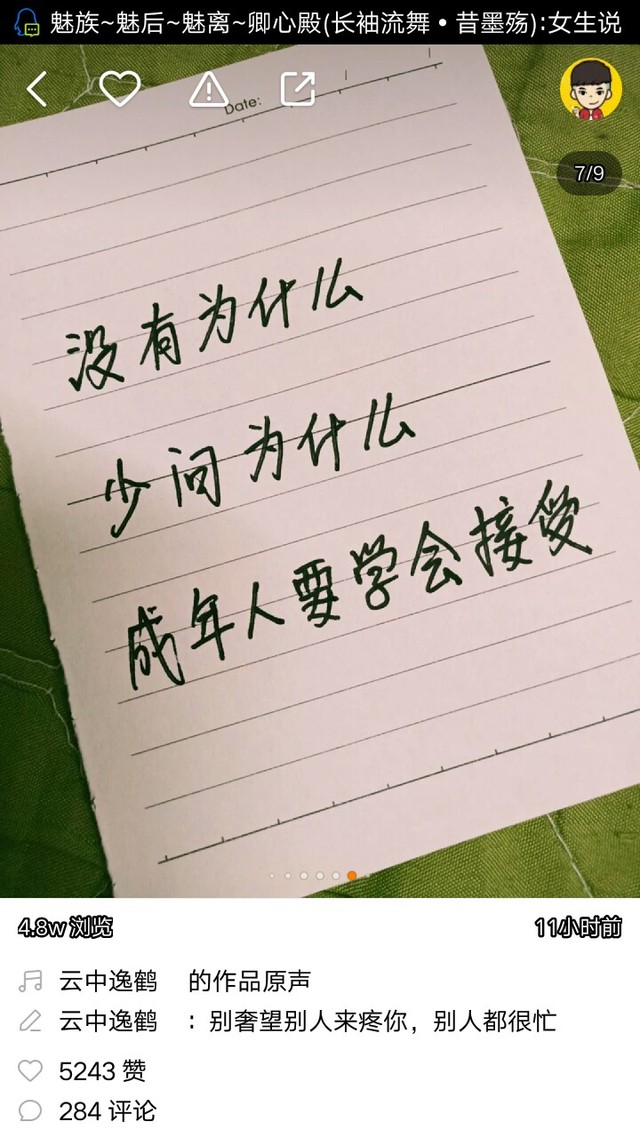 魅族~魅后~魅离~卿心殿(长袖流舞•昔墨殇):女生说
Date:
7/9
没有为什么
少问为什么
成年人要学会接受
4.8w 浏览
11小时前
云中逸鹤 的作品原声
云中逸鹤 : 别奢望别人来疼你，别人都很忙
5243 赞
284 评论